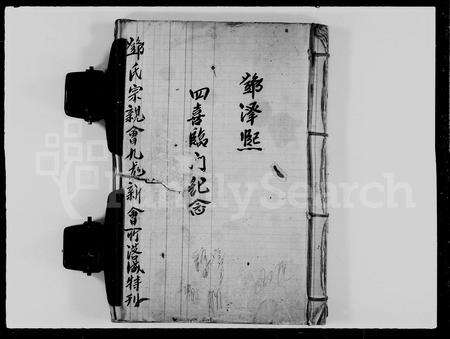 鄧澤熙
四喜臨門紀念
鄧氏宗親會九龍新會所落成特刊
FamilySearch